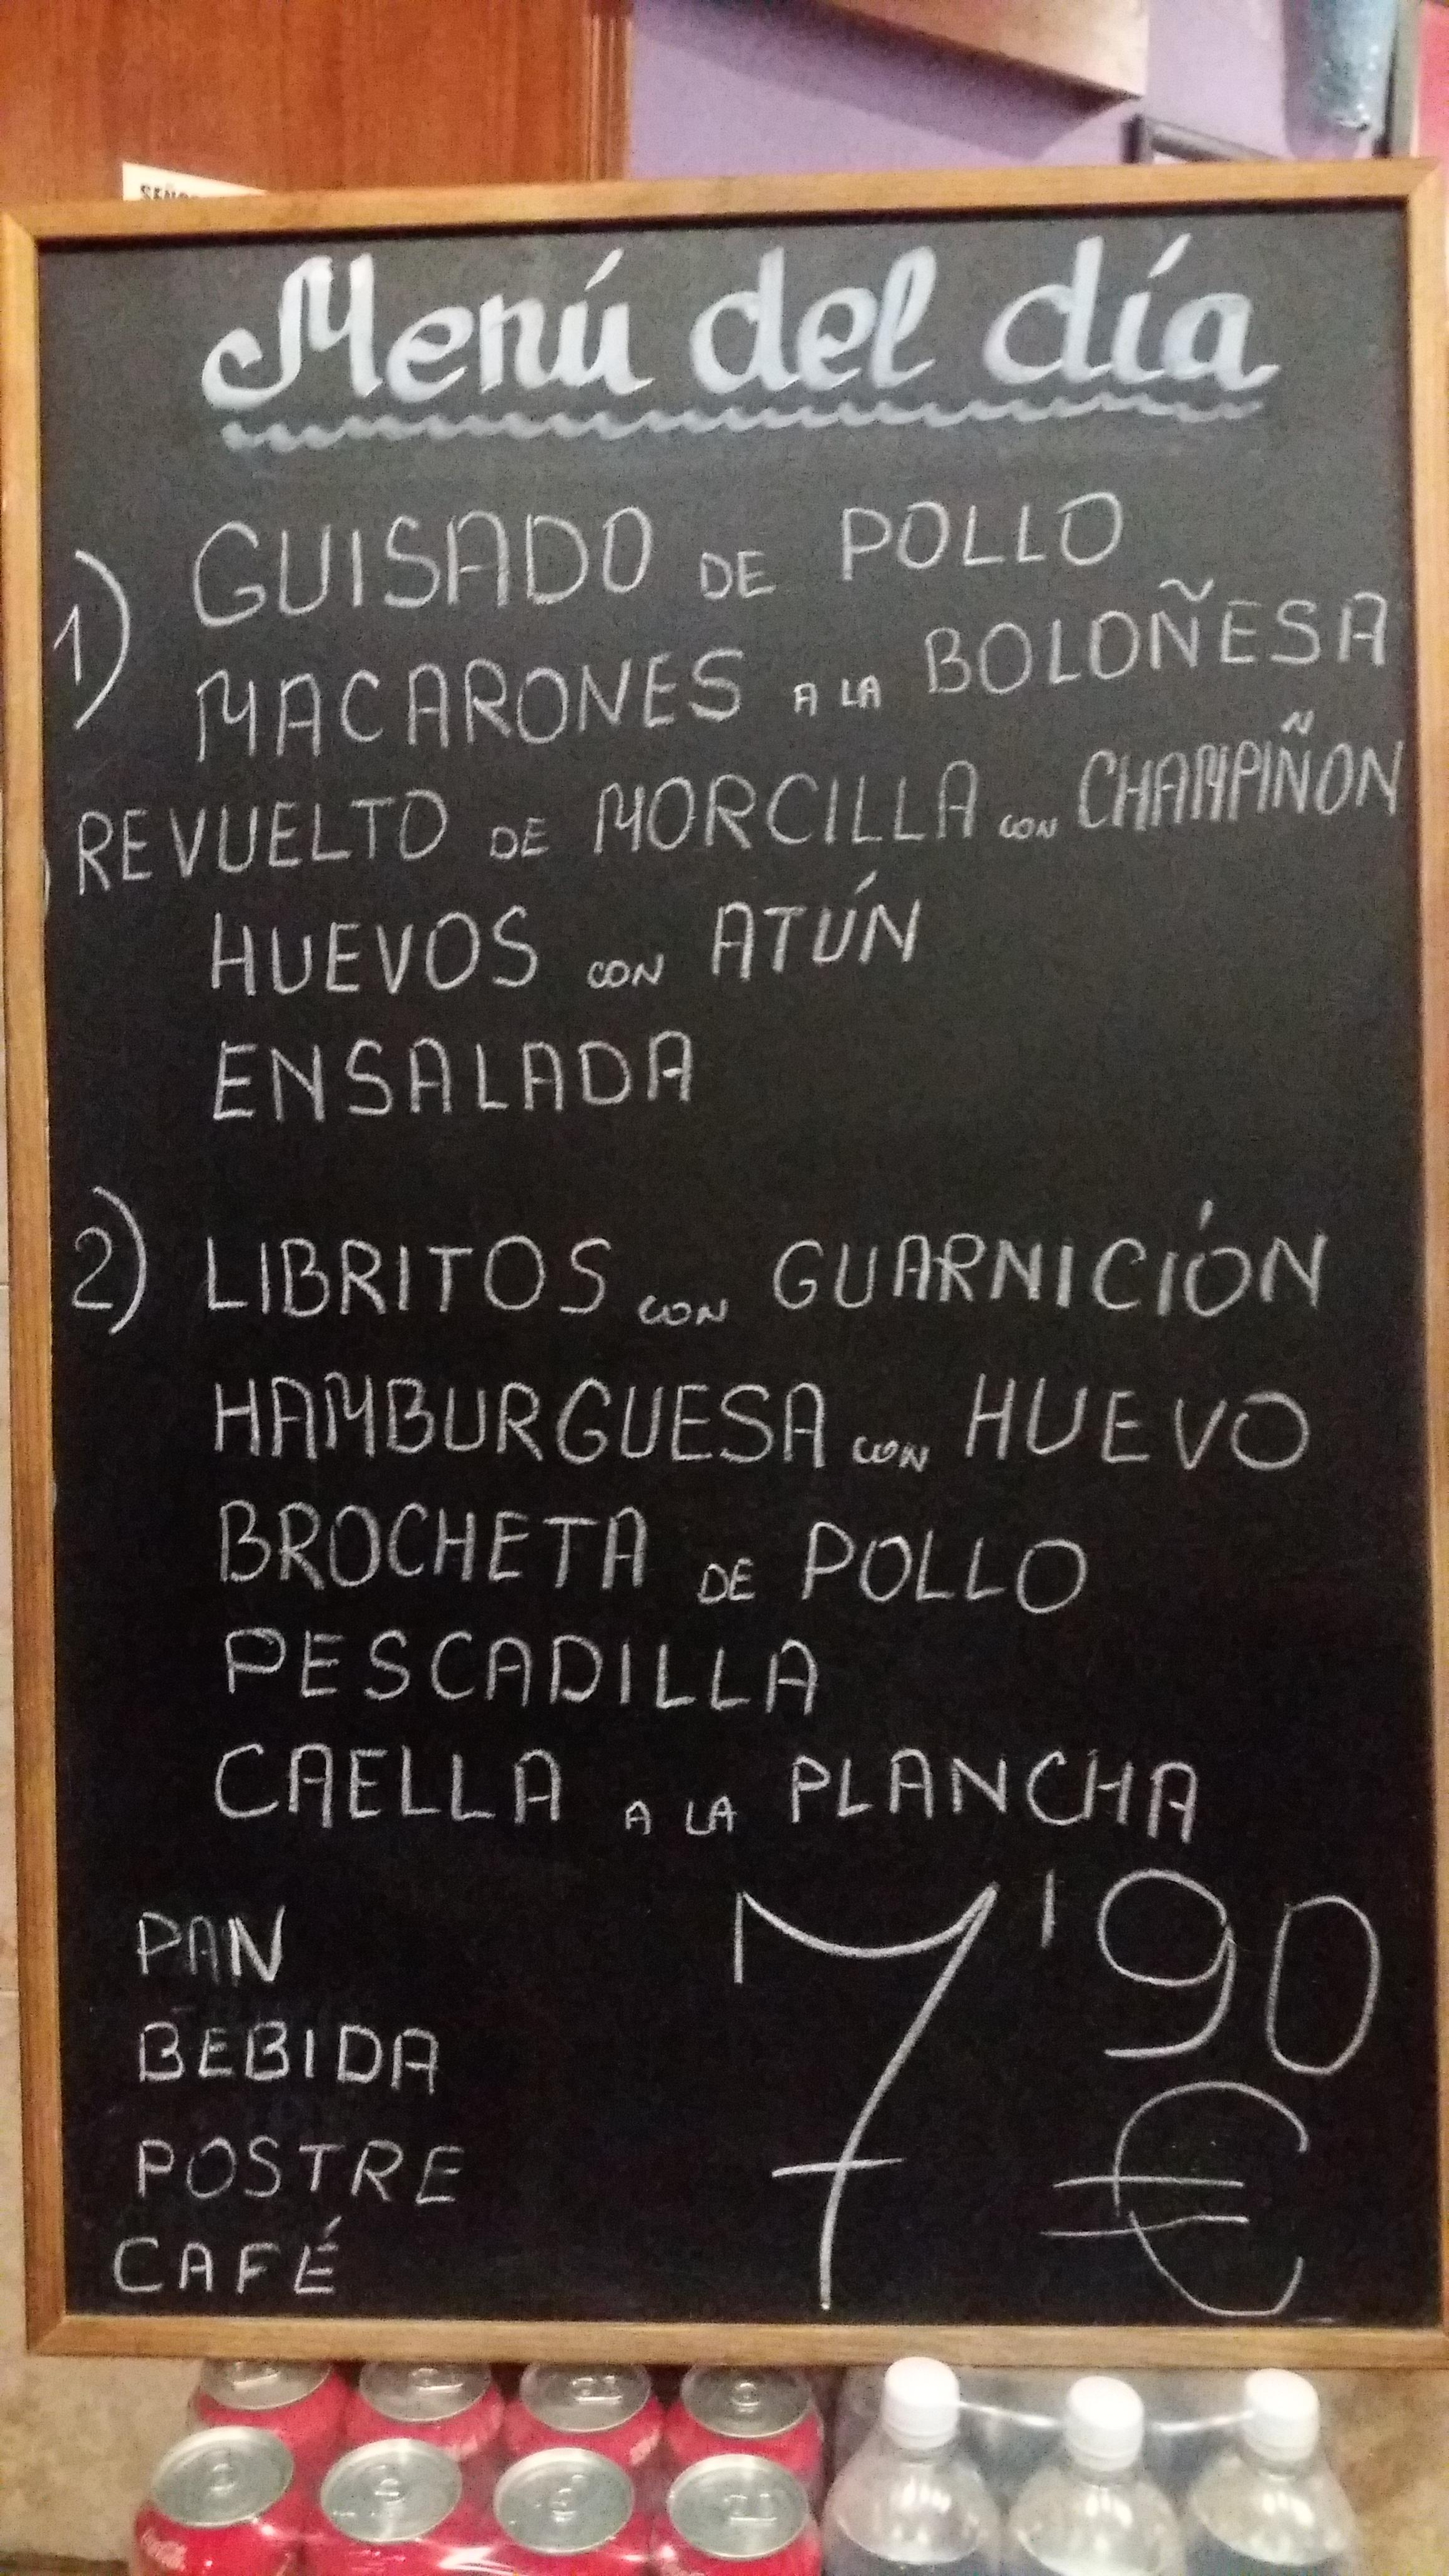 SEÑO
Menú del día
1) GUISADO DE POLLO
MACARONES A LA BOLOÑESA
REVUELTO DE MORCILLA CON CHAMPIÑON
HUEVOS CON ATÚN
ENSALADA
2) LIBRITOS CON GUARNICIÓN
HAMBURGUESA CON HUEVO
BROCHETA DE POLLO
PESCADILLA
CAELLA A LA PLANCHA
PAN
BEBIDA
POSTRE
CAFÉ
7'90
€